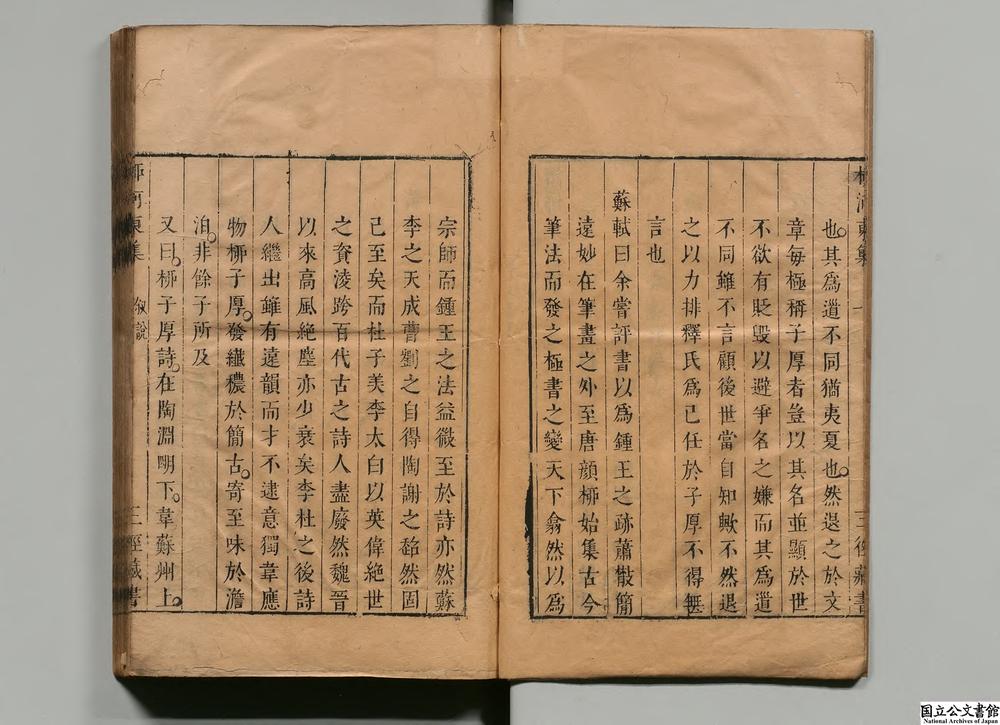 也其爲道不同猶夷夏也然退之於文
章每極稱子厚者豈以其名並顯於世
不欲有貶毀以避爭名之嫌而其爲道
不同雖不言顧後世當自知歟不然退
之以力排釋氏爲已任於子厚不得無
言也
蘇軾曰余嘗評書以爲鍾王之跡蕭散簡
遠妙在筆畫之外至唐顔柳始集古今
筆法而發之極書之變天下翕然以爲
宗師而鍾王之法益微至於詩亦然蘇
李之天成曹劉之自得陶謝之超然固
已至矣而杜子美李太白以英偉絶世
之資淩跨百代古之詩人盡廢然魏晉
以來高風絶塵亦少衰矣李杜之後詩
人繼出雖有遠韻而才不逮意獨韋應
物柳子厚發纖穠於簡古寄至味於澹
泊非餘子所及
又曰柳子厚詩在陶淵明下韋蘇州上
柳河東集 叙說 三徑藏書
国立公文書館
National Archives of Japan